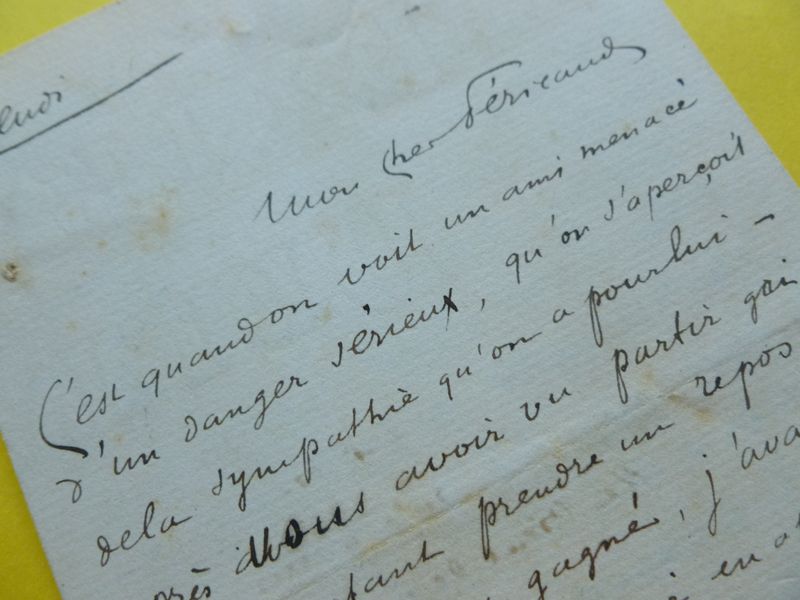 Mon cher Péricaud
C'est quand on voit un ami menacé
d'un danger sérieux, qu'on s'aperçoit
de la sympathie qu'on a pour lui -
vous avoir vu partir gai
prendre un repos
gagné, j'ava
en a